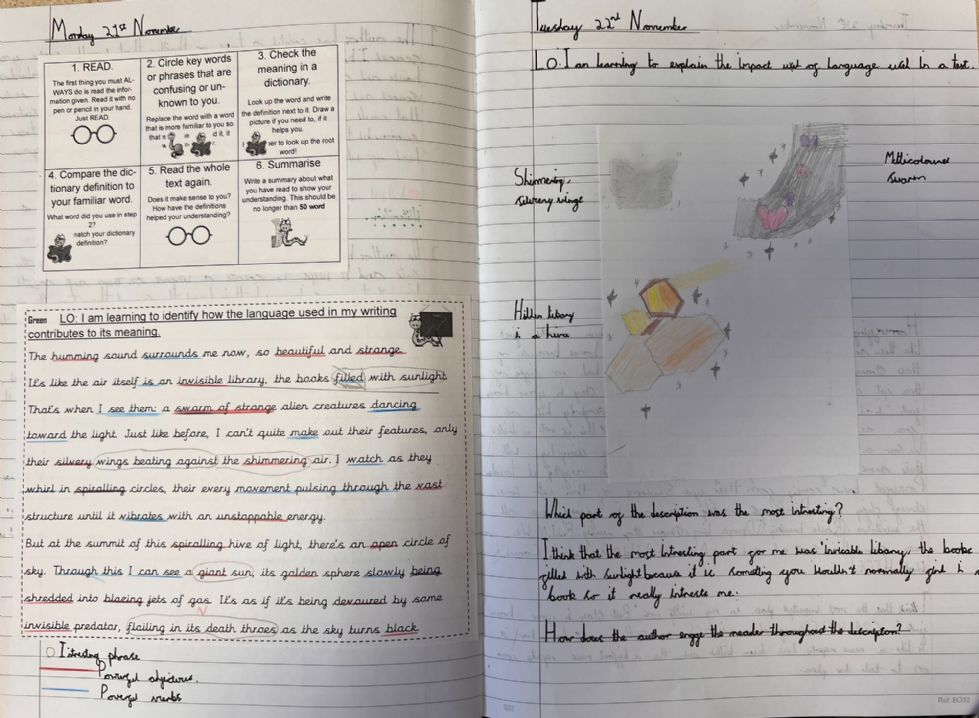 Monday 21st November
1. READ.
The first thing you must AL-
WAYS do is read the infor-
mation given. Read it with no
pen or pencil in your hand.
Just READ.
2. Circle key words
or phrases that are
confusing or un-
known to you.
Replace the word with a word
that is more familiar to you so
that it
3. Check the
meaning in a
dictionary.
Look up the word and write
the definition next to it. Draw a
picture if you need to, if it
helps you.
to look up the root
word!
4. Compare the dic-
tionary definition to
your familiar word.
What word did you use in step
2?
match your dictionary
definition?
5. Read the whole
text again.
Does it make sense to you?
How have the definitions
helped your understanding?
6. Summarise
Write a summary about what
you have read to show your
understanding. This should be
no longer than 50 word
Green LO: I am learning to identify how the language used in my writing
contributes to its meaning.
The humming sound surrounds me now, so beautiful and strange.
It's like the air itself is an invisible library, the books filled with sunlight
That's when I see them: a swarm of strange alien creatures dancing
toward the light. Just like before, I can't quite make out their features, only
their silvery wings beating against the shimmering air. I watch as they
whirl in spiralling circles, their every movement pulsing through the vast
structure until it vibrates with an unstoppable energy.
But at the summit of this spiralling hive of light, there's an open circle of
sky. Through this I can see a giant sun, its golden sphere slowly being
shredded into blazing jets of gas. It's as if it's being devoured by some
invisible predator, flailing in its death throes as the sky turns black.
Intresting phrase
Powerful adjectives.
Powerful verbs
Tuesday 22nd November
LO: I am learning to explain the impact of language used in a text.
Shimmering,
silvery wings
swarm
in a hive
Which part of the description was the most intresting?
I think that the most intresting part for me was 'invisable libary, the books
filled with sunlight because it is something you wouldn't normally find in
book so it really intrests me.
How does the author the reader throughout the description?
322
Ref: BO32